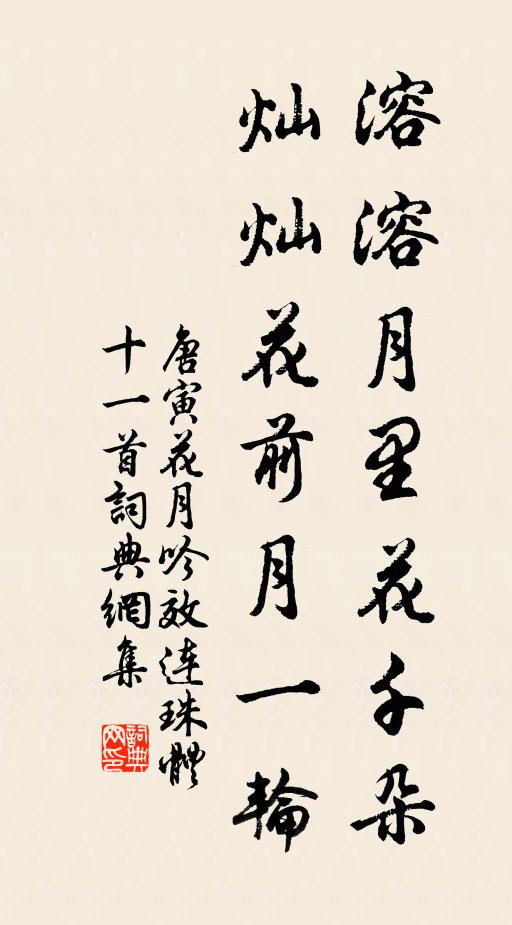 溶溶月里花千朵
灿灿花前月一輪
唐寅花月吟效连珠體
十一首詞典網集
詞典网印